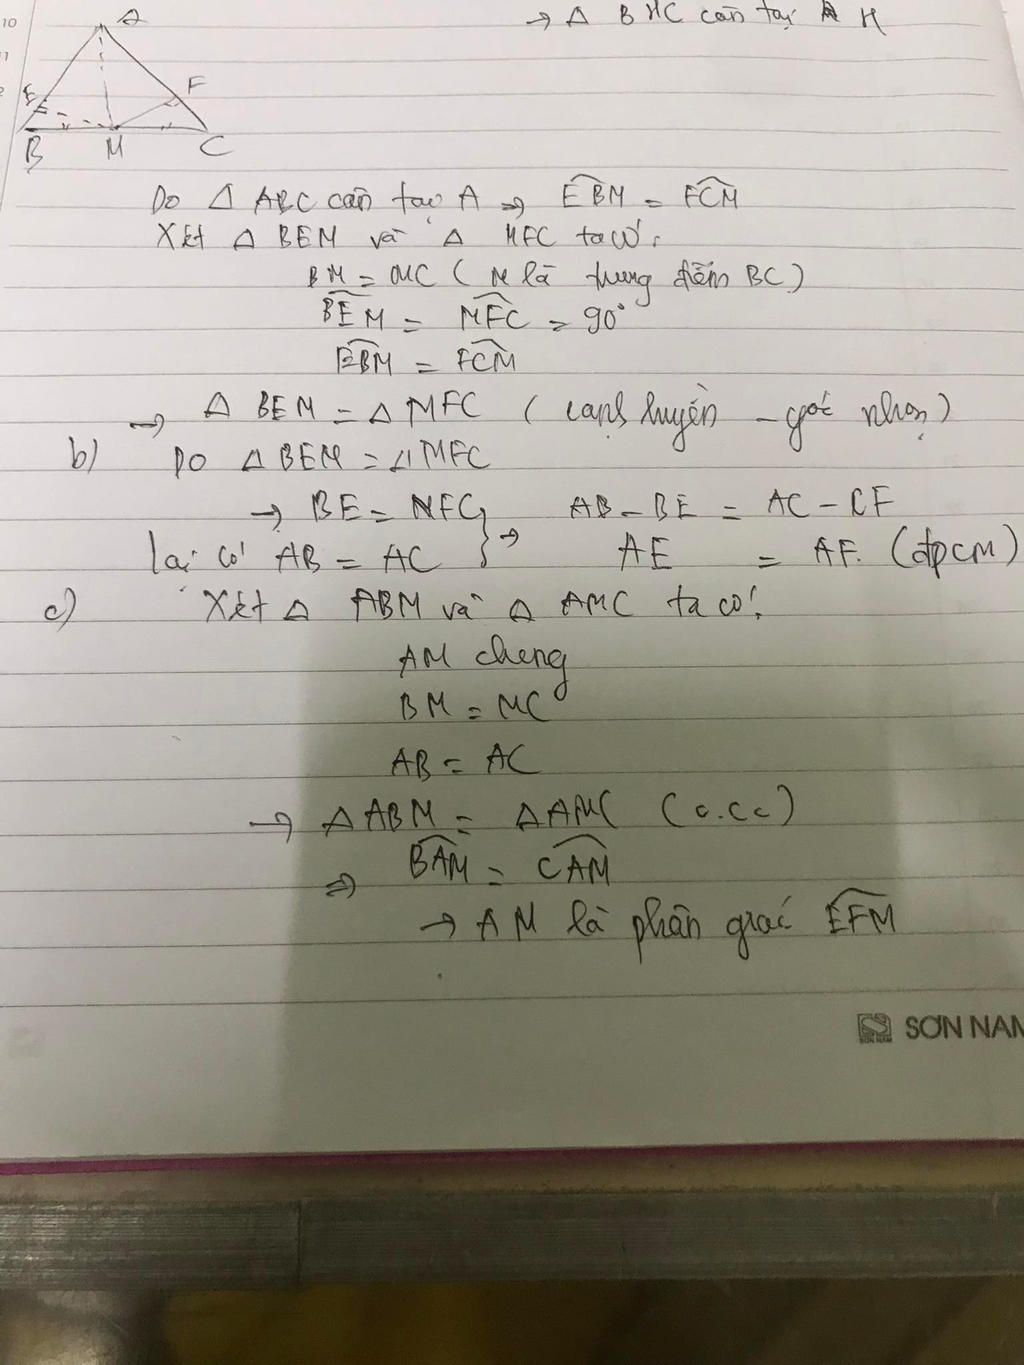 → Δ BHC cân tại H
10
11
2
A
E
F
B
M
C
Do Δ ABC cân tại A ⇒ EBM = FCM
Xét Δ BEM và Δ MFC ta có:
BM = MC (M là trung điểm BC)
BEM = MFC = 90°
EBM = FCM
→ Δ BEM = Δ MFC (cạnh huyền - góc nhọn)
b) Do Δ BEM = Δ MFC
→ BE = FC } ⇒ AB - BE = AC - CF
lại có AB = AC AE = AF. (đpcm)
c) Xét Δ ABM và Δ AMC ta có:
AM chung
BM = MC
AB = AC
→ Δ ABM = Δ AMC (c.c.c)
⇒ BAM = CAM
→ AM là phân giác EFM
SƠN NAM